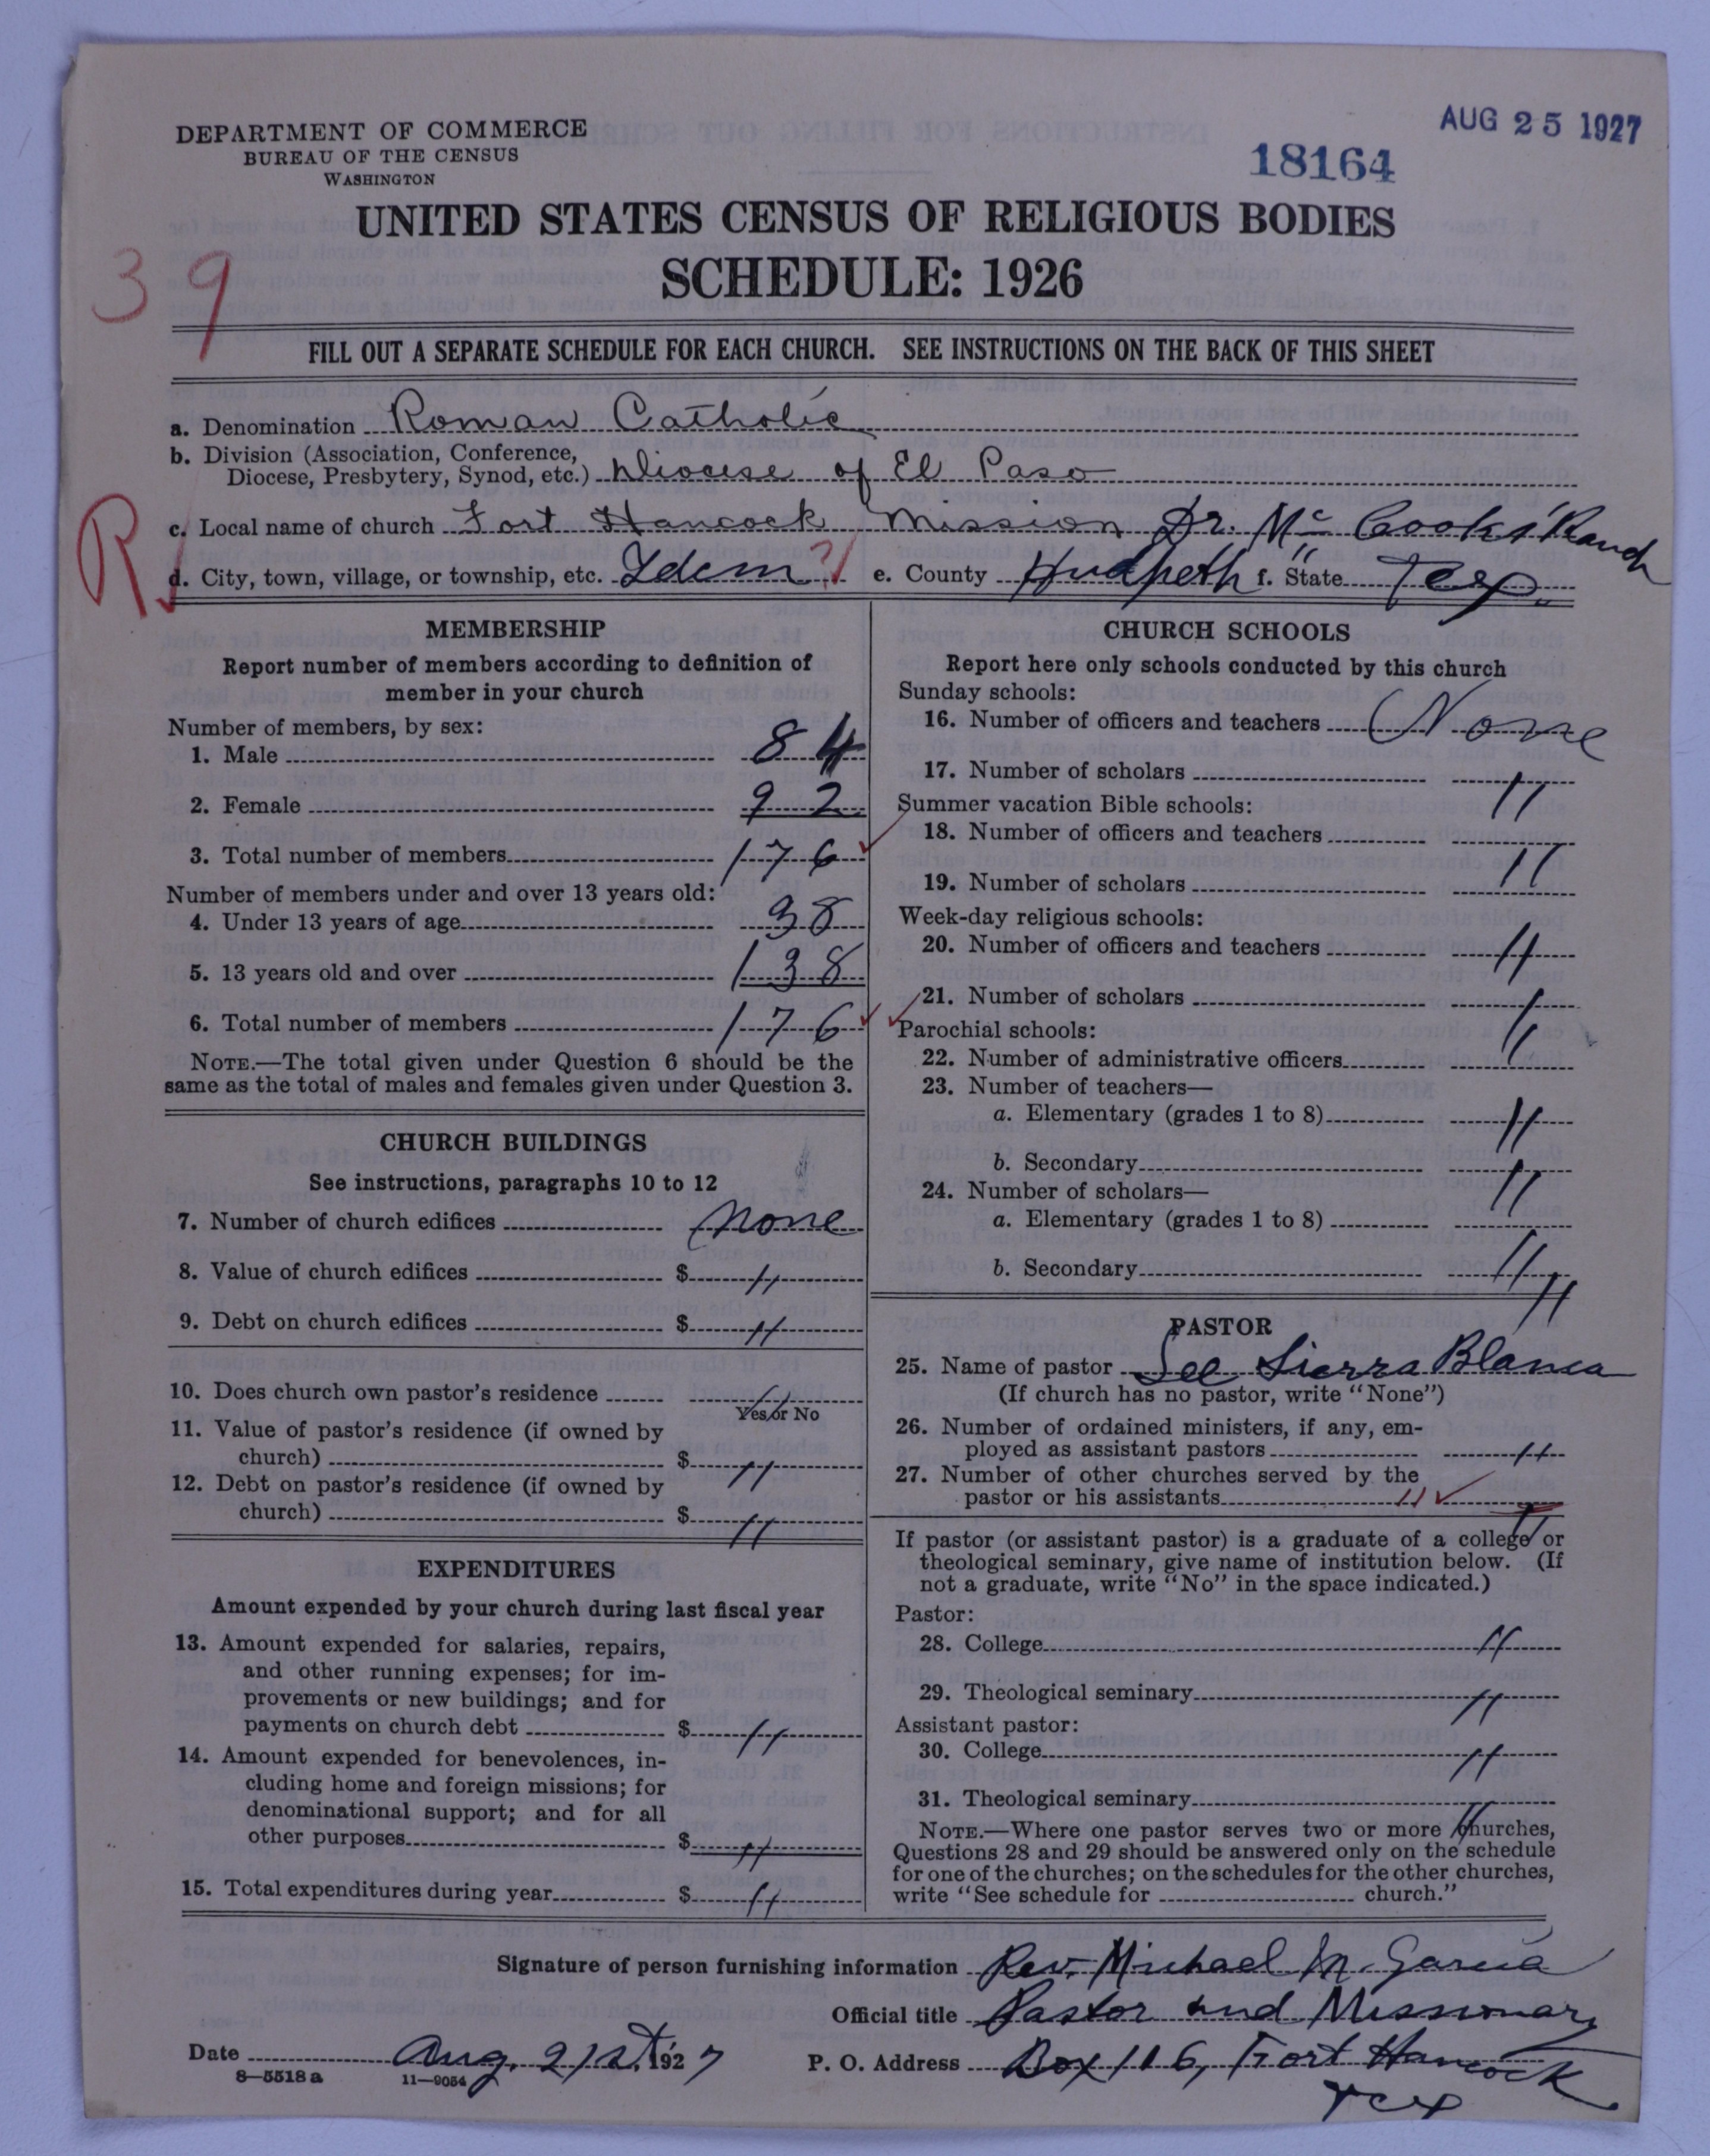 AUG 25 1927
DEPARTMENT OF COMMERCE
BUREAU OF THE CENSUS
WASHINGTON
18164
UNITED STATES CENSUS OF RELIGIOUS BODIES
SCHEDULE: 1926
39
FILL OUT A SEPARATE SCHEDULE FOR EACH CHURCH. SEE INSTRUCTIONS ON THE BACK OF THIS SHEET
a. Denomination Roman Catholic
b. Division (Association, Conference,
Diocese, Presbytery, Synod, etc.) Diocese of El Paso
R
c. Local name of church Fort Hancock Mission Dr. Mc Cooks' Ranch
d. City, town, village, or township, etc. Idem ? e. County Hudpeth f. State Tex.
MEMBERSHIP
Report number of members according to definition of
member in your church
Number of members, by sex:
1. Male 84
2. Female 92
3. Total number of members 176
Number of members under and over 13 years old:
4. Under 13 years of age 38
5. 13 years old and over 138
6. Total number of members 176
NOTE.—The total given under Question 6 should be the
same as the total of males and females given under Question 3.
CHURCH BUILDINGS
See instructions, paragraphs 10 to 12
7. Number of church edifices None
8. Value of church edifices $ "
9. Debt on church edifices $ "
10. Does church own pastor's residence "
Yes or No
11. Value of pastor's residence (if owned by
church) $ "
12. Debt on pastor's residence (if owned by
church) $ "
EXPENDITURES
Amount expended by your church during last fiscal year
13. Amount expended for salaries, repairs,
and other running expenses; for im-
provements or new buildings; and for
payments on church debt $ "
14. Amount expended for benevolences, in-
cluding home and foreign missions; for
denominational support; and for all
other purposes $ "
15. Total expenditures during year $ "
CHURCH SCHOOLS
Report here only schools conducted by this church
Sunday schools:
16. Number of officers and teachers None
17. Number of scholars "
Summer vacation Bible schools:
18. Number of officers and teachers "
19. Number of scholars "
Week-day religious schools:
20. Number of officers and teachers "
21. Number of scholars "
Parochial schools:
22. Number of administrative officers "
23. Number of teachers—
a. Elementary (grades 1 to 8) "
b. Secondary "
24. Number of scholars—
a. Elementary (grades 1 to 8) "
b. Secondary "
PASTOR
25. Name of pastor See Sierra Blanca
(If church has no pastor, write "None")
26. Number of ordained ministers, if any, em-
ployed as assistant pastors "
27. Number of other churches served by the
pastor or his assistants 11
If pastor (or assistant pastor) is a graduate of a college or
theological seminary, give name of institution below. (If
not a graduate, write "No" in the space indicated.)
Pastor:
28. College "
29. Theological seminary "
Assistant pastor:
30. College "
31. Theological seminary "
NOTE.—Where one pastor serves two or more churches,
Questions 28 and 29 should be answered only on the schedule
for one of the churches; on the schedules for the other churches,
write "See schedule for church."
Signature of person furnishing information Rev. Michael M. Garcia
Official title Pastor and Missionary
Date Aug. 21st, 1927 P. O. Address Box 116, Fort Hancock
8—5518 a 11—9054 Tex